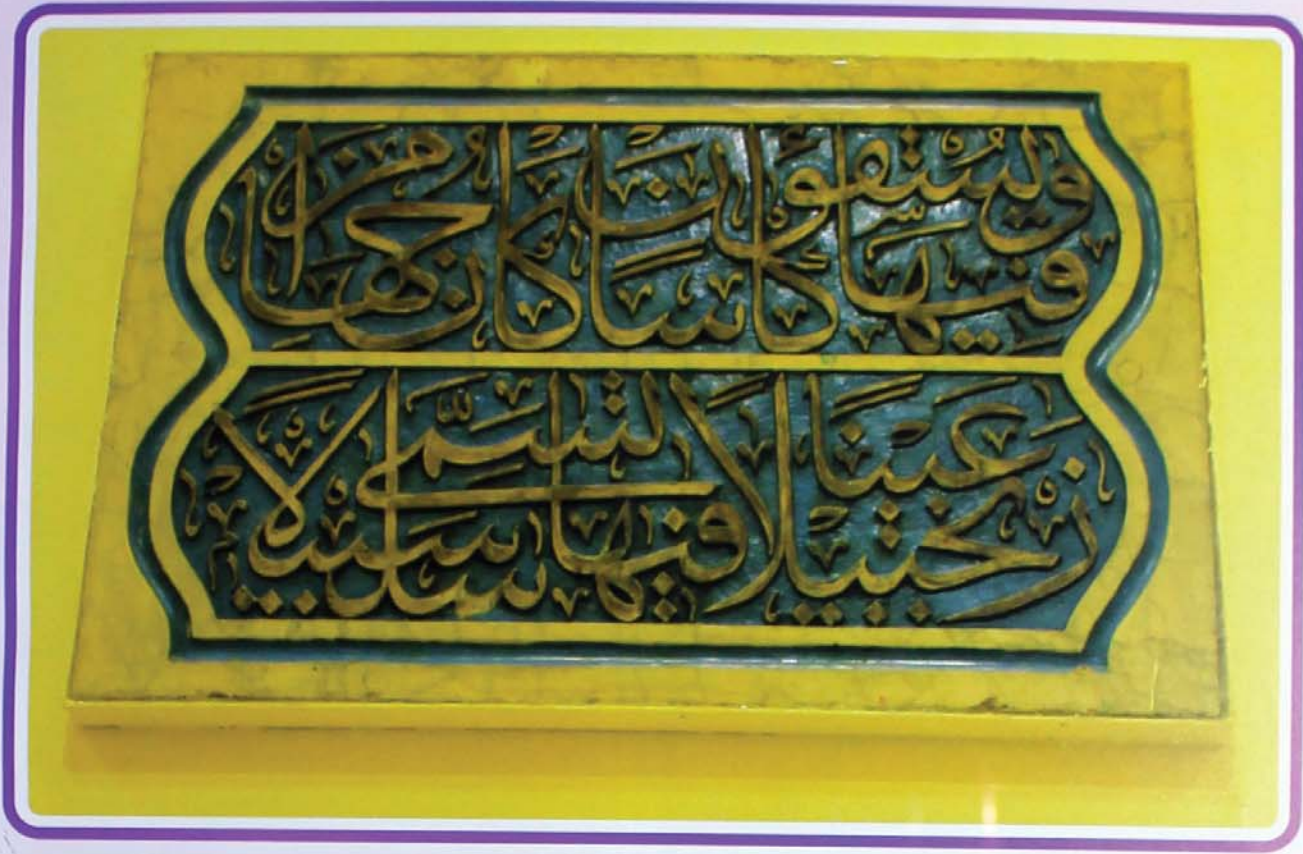 وَيُسْقَوْنَ فِيهَا كَأْسًا كَانَ مِزَاجُهَا
زَنْجَبِيلًا عَيْنًا فِيهَا تُسَمَّى سَلْسَبِيلًا